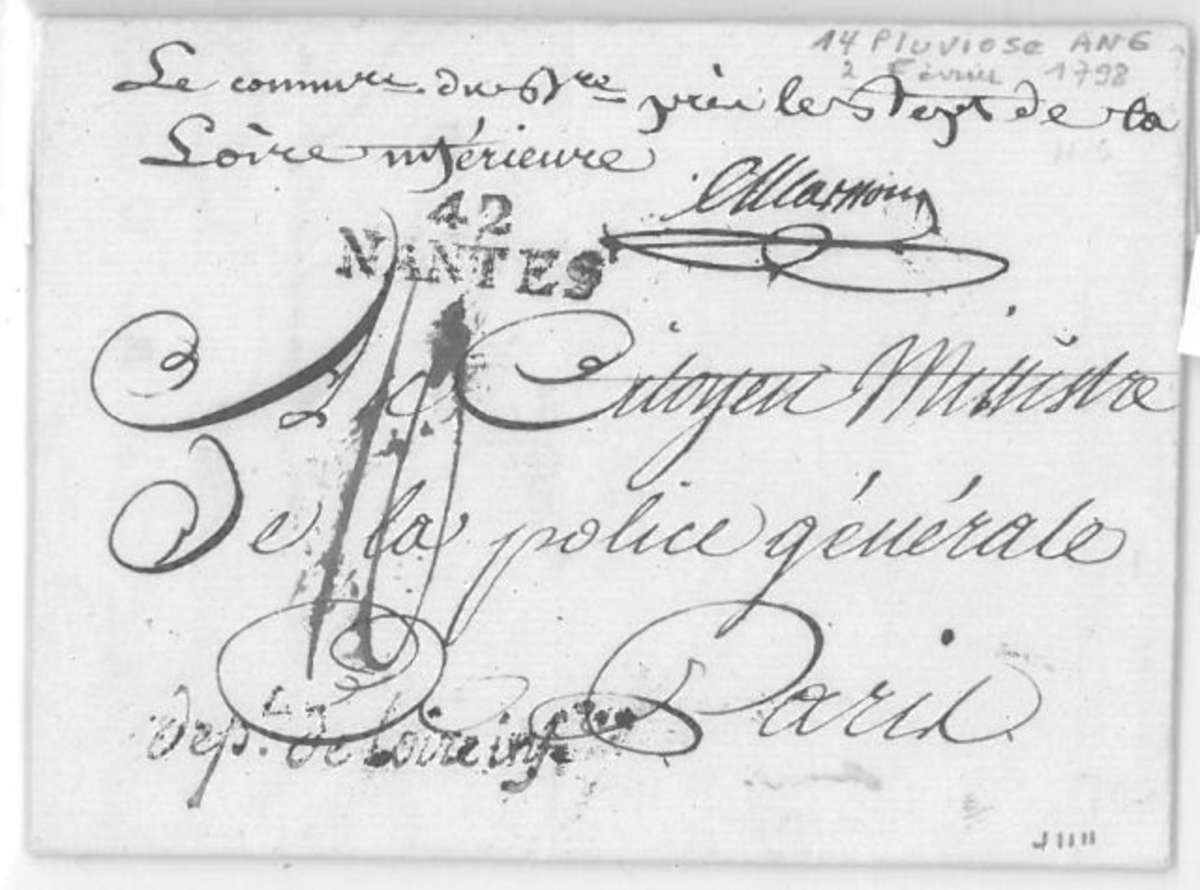 14 Pluviose AN 6
2 Février 1798
Le commre du Dre près le Dept de la
Loire inférieure
42
NANTES
Le Citoyen Ministre
De la police générale
Paris
Dep. de Loire infre